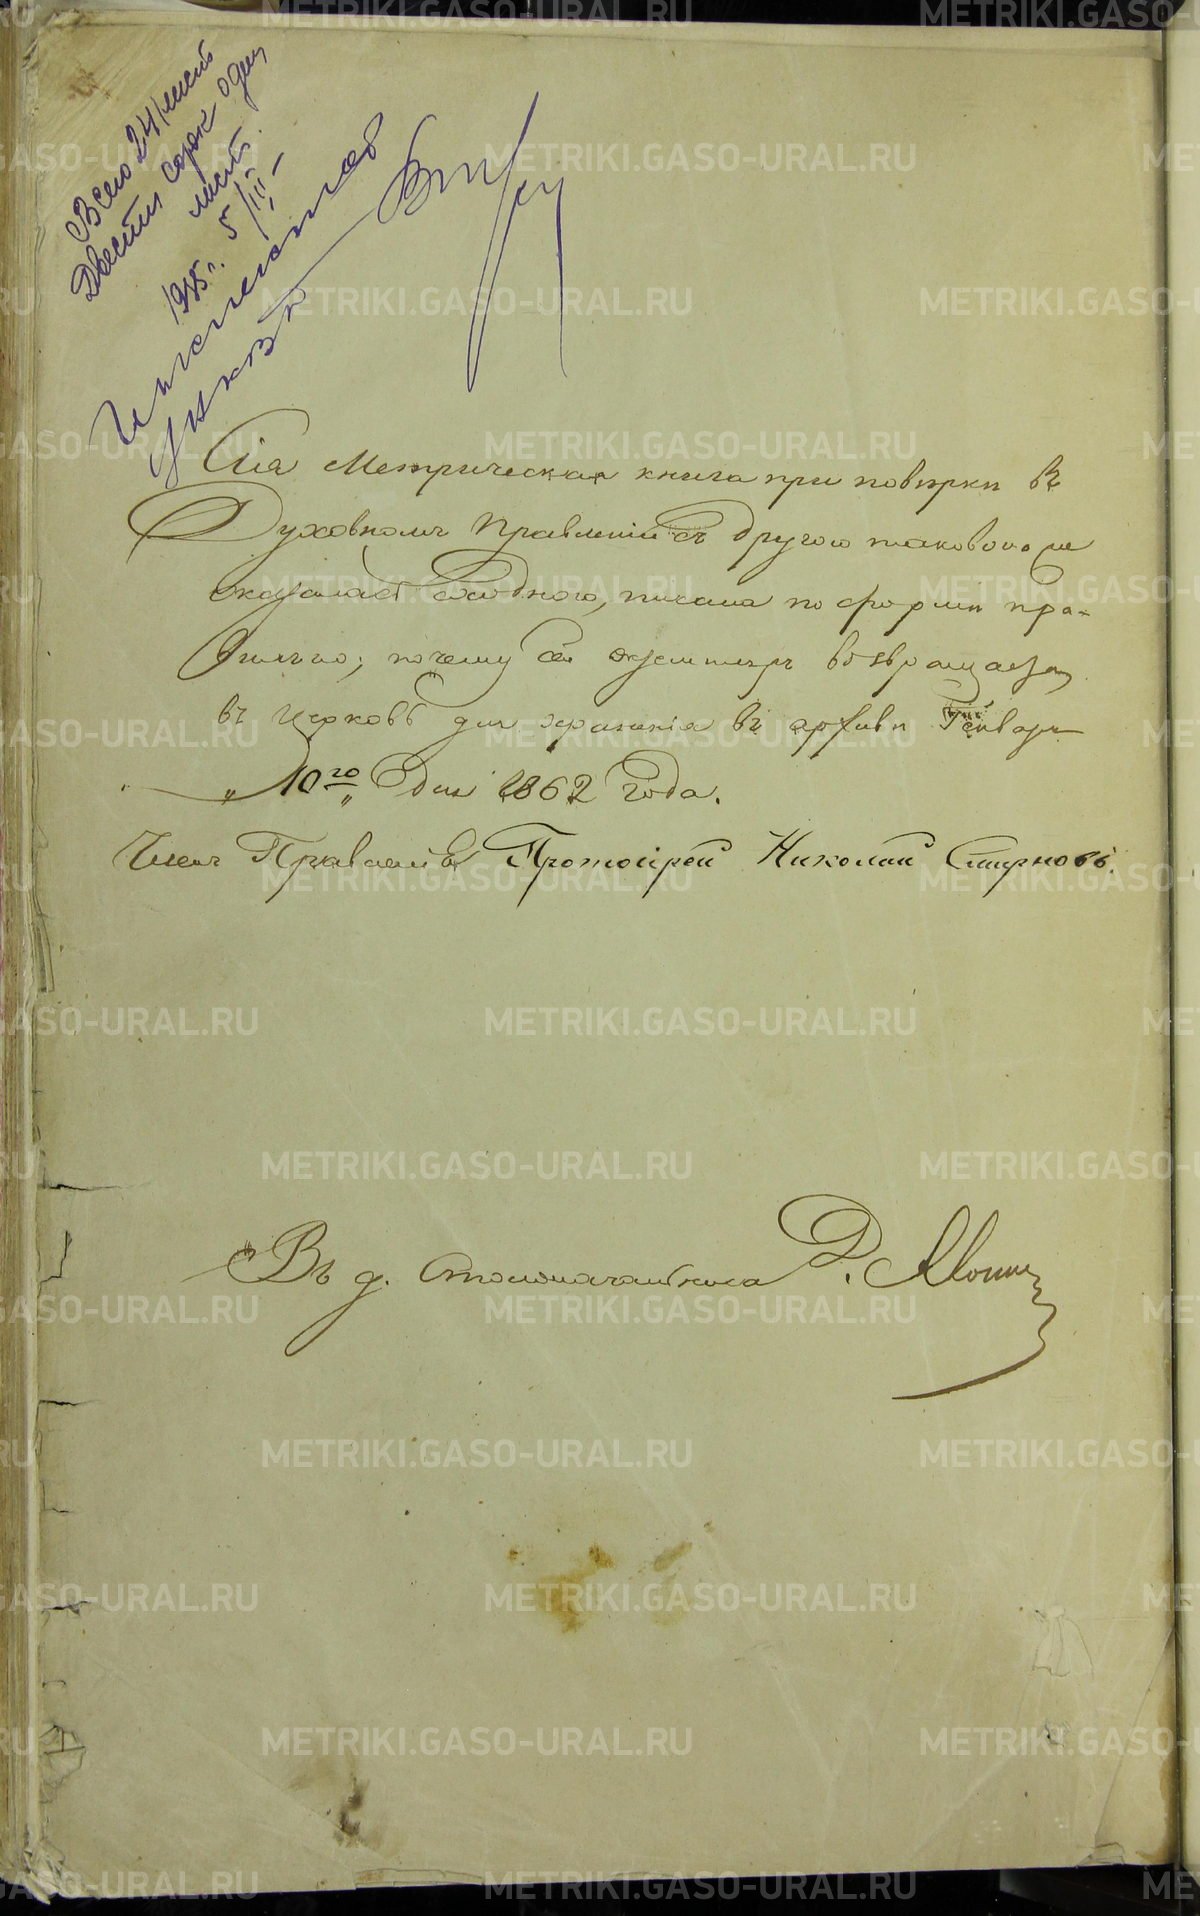 Всего 241 лист
Двести сорок один
лист.
1985г. 5/III-
Сія Метрическая книга при повѣрки въ
Духовномъ Правленіи съ другою таковою же
оказалась сходною, писана по формѣ пра-
вильно; почему сей экземпляръ возвращается
въ церковь для храненія въ архивѣ Генваря
„ 10го „ дня 1862 года.
Членъ Правленія Протоіерей Николай Смирновъ.
Въ д. Столоначальника